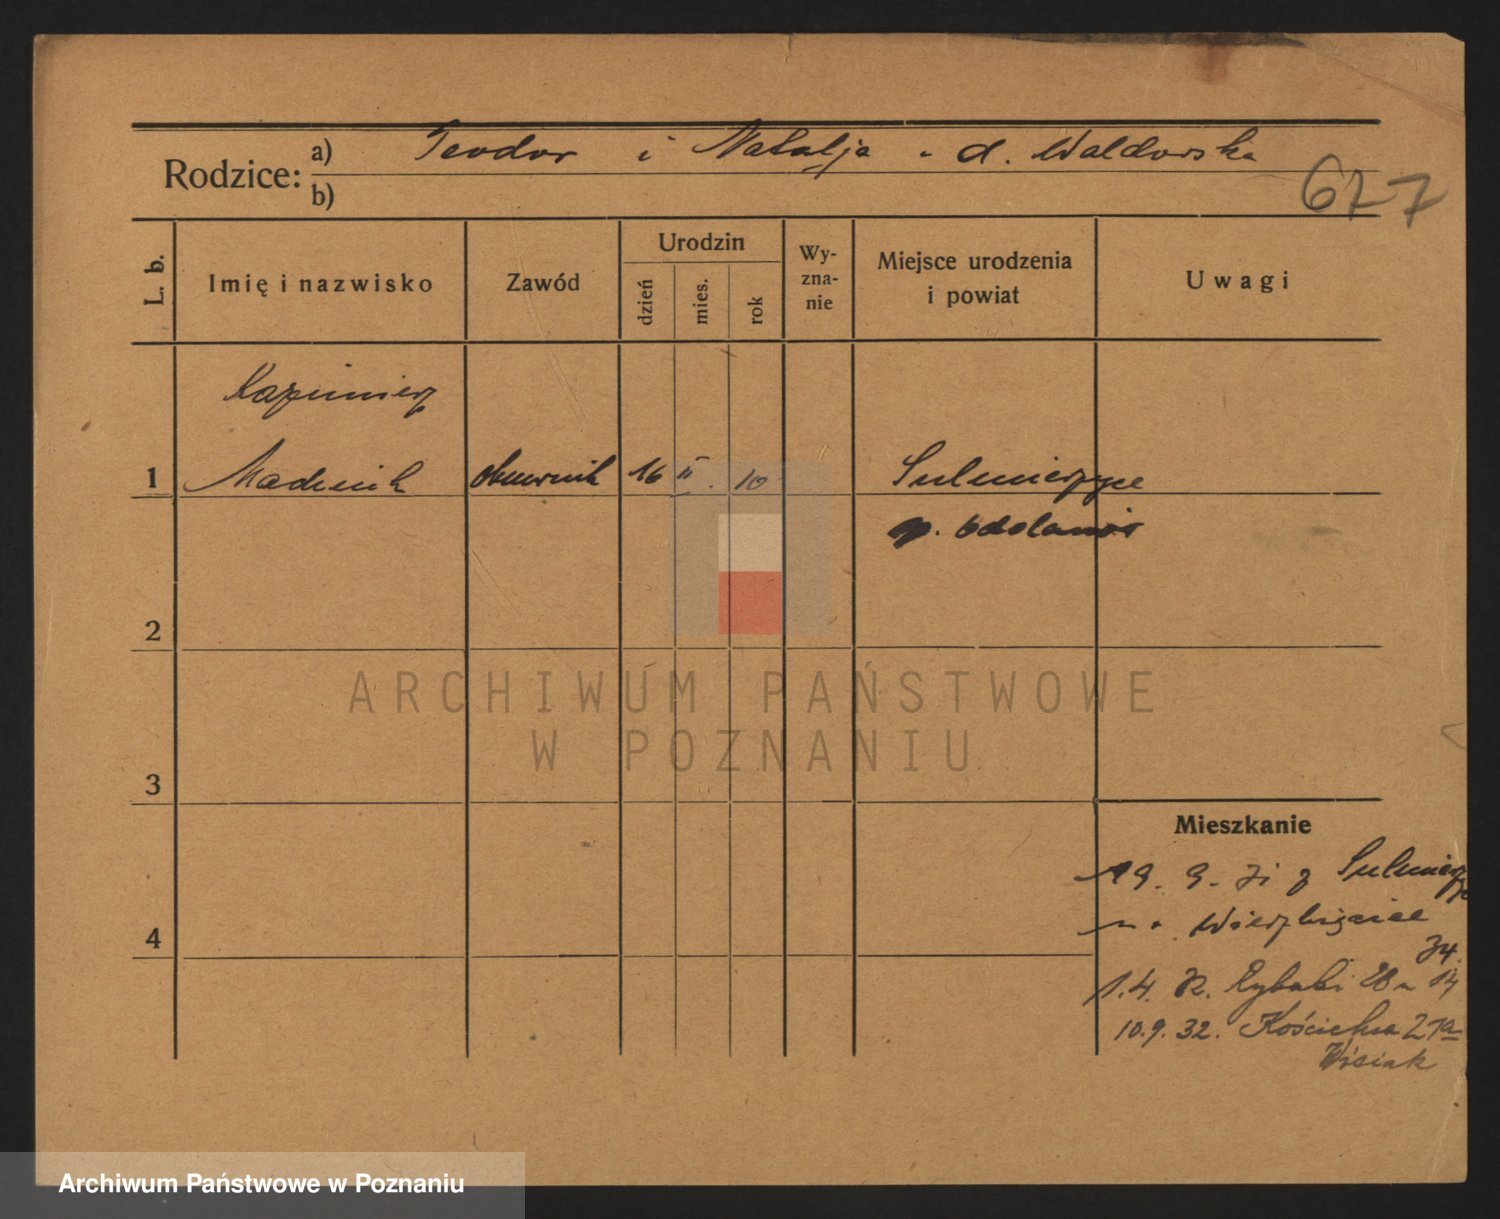 Rodzice: a) Teodor i Natalja - d. Waldowska
b)
677
L. b.
Imię i nazwisko
Zawód
Urodzin
dzień
mies.
rok
Wy-
zna-
nie
Miejsce urodzenia
i powiat
Uwagi
Kazimierz
1
16 II. 10
Sulmierzyce
p. Odolanów
2
3
4
Mieszkanie
19. 9. 31 z Sulmierzyc
Wierzbięcice
34.
1. 4. 32. Rybaki
10.9.32. Kościelna 27a
Wisiak
ARCHIWUM PAŃSTWOWE
W POZNANIU
Archiwum Państwowe w Poznaniu